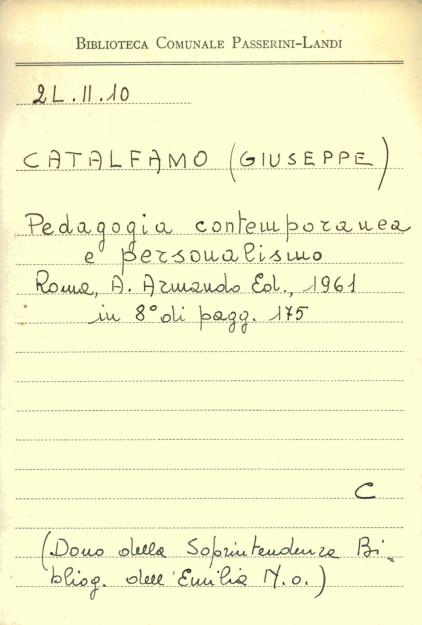 BIBLIOTECA COMUNALE PASSERINI-LANDI
2L.II.10
CATALFAMO (GIUSEPPE)
Pedagogia contemporanea
e personalismo
Roma, A. Armando Ed., 1961
in 8° di pagg. 175
C
(Dono della Soprintendenza Bi-
bliog. dell'Emilia N.O.)